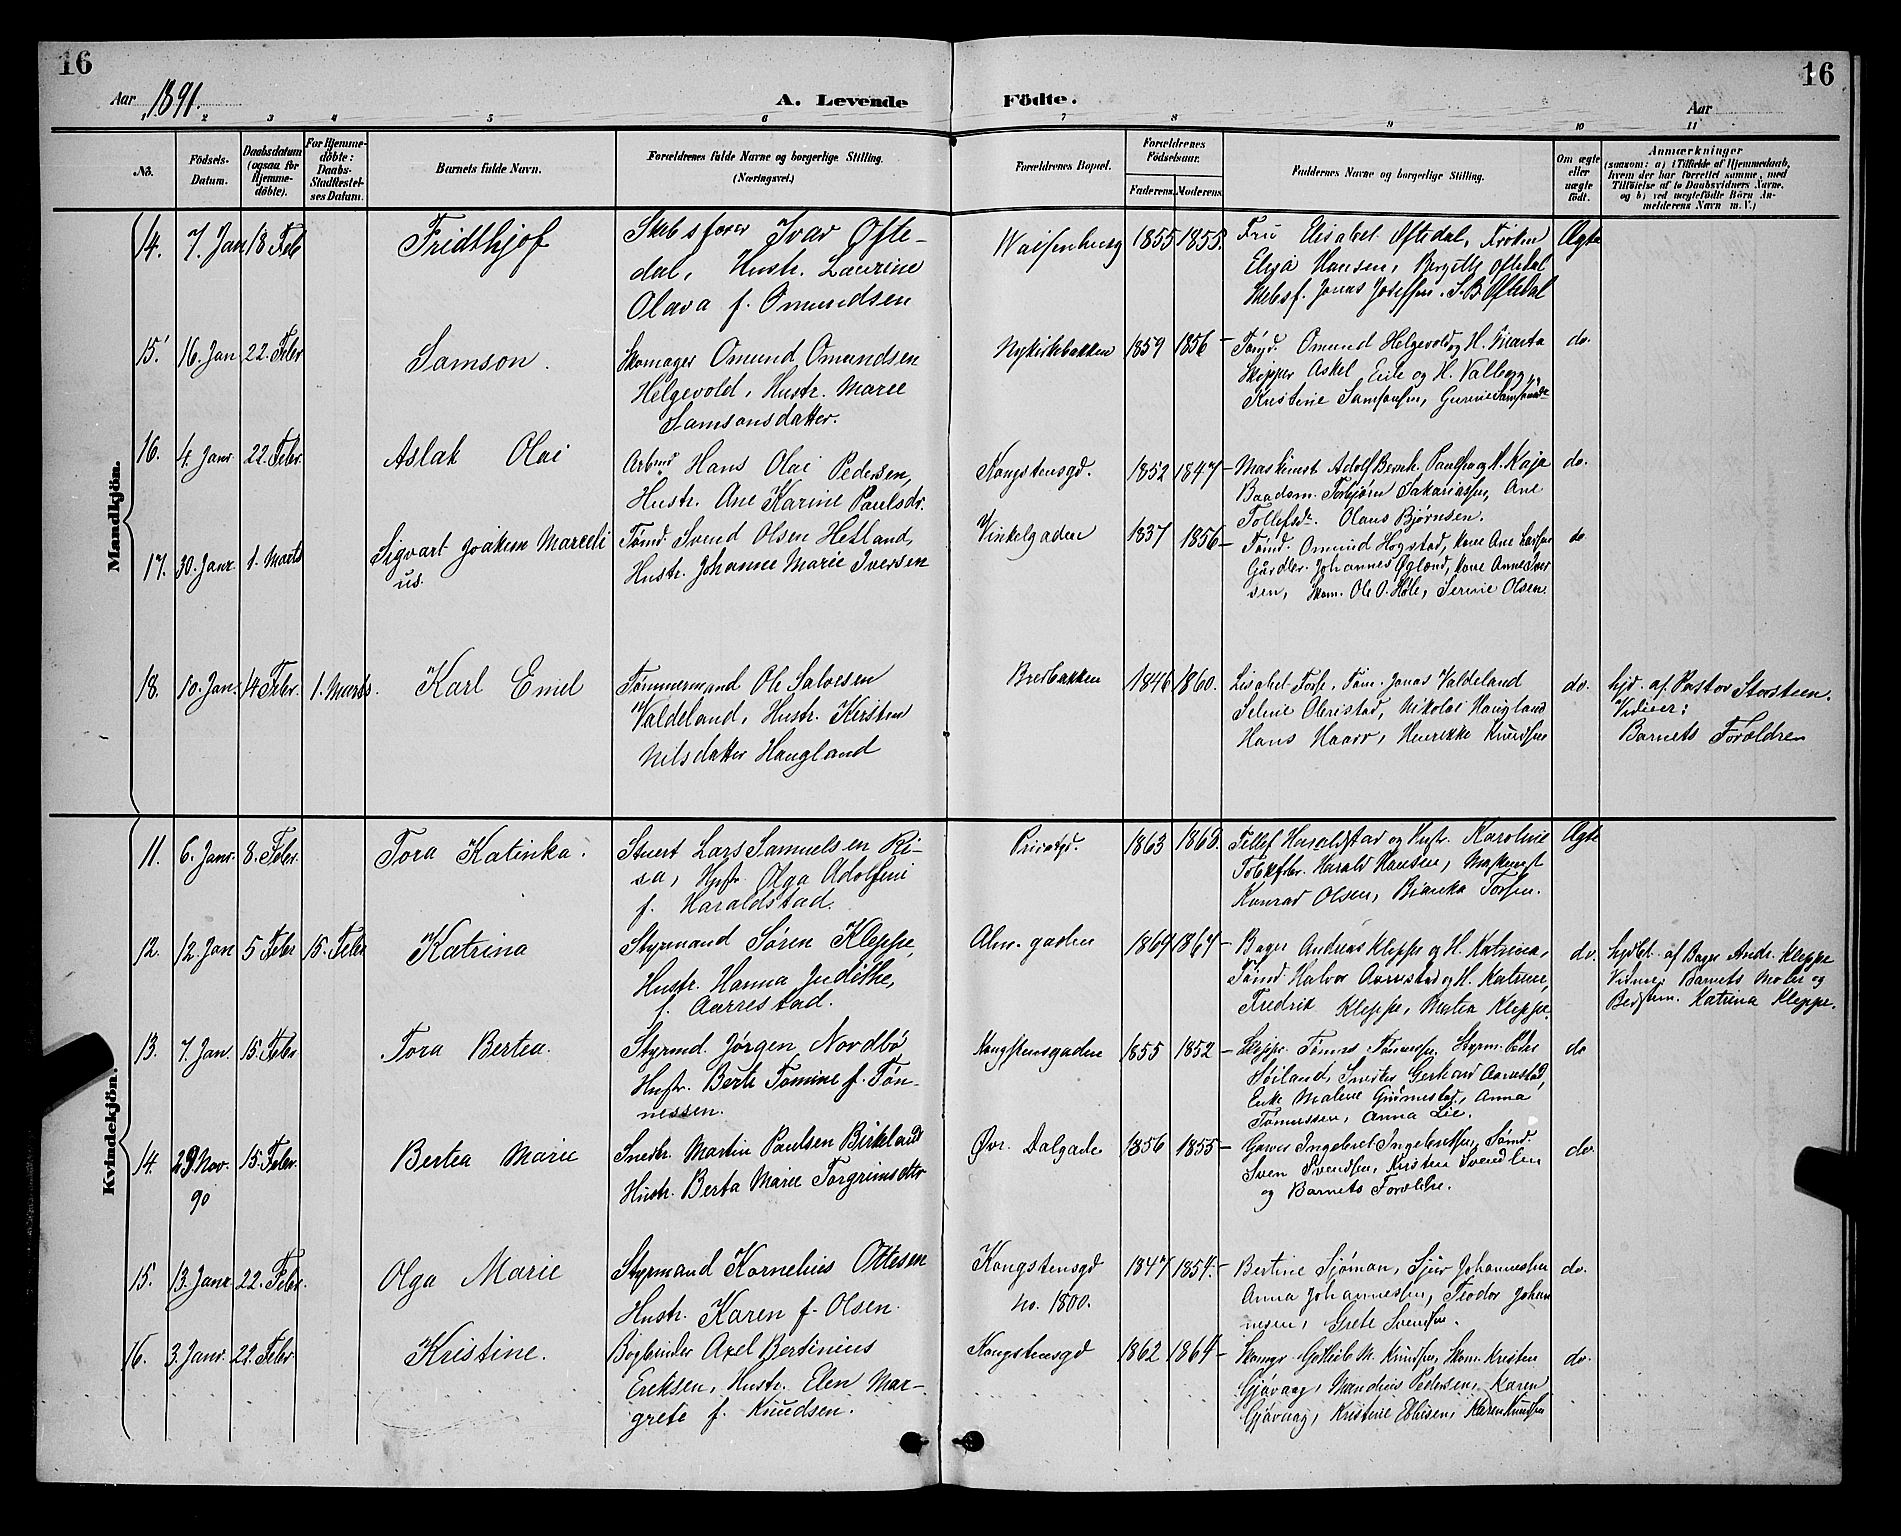 16
16
Aar 1891.
A. Levende Födte.
Aar
2 3 4 5 6 7 8 9 10 11
No.
Födsels-Datum.
Daabsdatum (ogsaa for Hjemme-döbte).
For Hjemme-döbte: Daabs-Stadfæstel-ses Datum.
Barnets fulde Navn.
Forældrenes fulde Navne og borgerlige Stilling. (Næringsvei.)
Forældrenes Bopæl.
Forældrenes Födselsaar.
Faderens. Moderens.
Faddernes Navne og borgerlige Stilling.
Om ægte eller uægte födt.
Anmærkninger
(saasom: a) i Tilfælde af Hjemmedaab, hvem der har forrettet samme, med Tilföielse af to Daabsvidners Navne. og b) ved uægtefödte Börn Anmelderens Navn m. V.)
Mandkjön.
14. 7. Jan 18 Feb Fridthjof Skibsfører Ivar Ofte-
dal, Hustr. Laurine
Olava f. Omundsen
Waisenhusg 1855 1855. Fru Elisabet Oftedal, Frøken Ægte
Elisa Hansen, Bergitte Oftedal
Skibsf. Jonas Joseffsen. S. B. Oftedal
15. 16. Jan 22. Febr Samson. Skomager Omund Omundsen
Helgevold, Hustr. Marie
Samsonsdatter.
Nykirkebakken 1859 1856 – Omund Helgevold og H. Marta do.
Skipper Askel Eie og H. Valborg,
Kristine Samsonsen, Gurine Samsonsdr
16. 4. Janr 22. Febr. Aslak Olai Arbmd Hans Olai Pedersen,
Hustr. Ane Karine Paulsdr.
Kongstensgd. 1852 1847 – Maskinist Adolf Bernh. Paulsen og H. Kaja do.
Baadsm. Torbjørn Sakariassen, Ane
Tollefsdr. Olaus Bjørnsen.
17. 30. Janr 1. Marts Sigvart Joakim Marceli
us.
Tømd. Svend Olsen Hetland,
Hustr. Johanne Marie Iversen
Vinkelgaden 1837 1856 – Tømd. Omund Hogstad, Kone Ane Larsen do
Gårdbr. Johannes Øglænd, Kone Anne Iver
sen, Skom. Ole O. Høle, Serine Olsen.
18. 10. Jan. 14 Febr. 1. Marts. Karl Emil Tømmermand Ole Salvesen
Valdeland, Hustr. Kirsten
Nilsdatter Haugland
Bredbakken 1846 1860. Lisabet Torse, Tøm. Jonas Valdeland do.
Seline Olmestad, Nikolai Haugland
Hans Haarr, Henrikke Knudsen
hjd. af Pastor Storsteen.
Vidner:
Barnets Forældren
Kvindekjön.
11. 6. Janr. 8. Febr. Tora Katinka. Stuert Lars Samuelsen Ri-
sa, Hustr. Olga Adolfine
f. Haraldstad.
1863 1863. Tellef Haraldstad og Hustr. Karoline Ægte
Harald Hansen,
Konrad Olsen, Bianka Torsen.
12. 12. Jan 5 Febr 15. Febr Katrina Styrmand Søren Kleppe,
Hustr. Hanna Judithe,
f. Aarrestad.
Alm. gaden 1864 1864 – Bager Andreas Kleppe og H. Katrina, do.
Tømd. Halvor Aarrestad og H. Katrine,
Fredrik Kleppe, Martea Kleppe.
hjdbt. af Bager Andr. Kleppe
Vidner: Barnets Moder og
Bedstem. Katrina Kleppe.
13. 7. Jan. 15. Febr Tora Bertea. Styrmd. Jørgen Nordbø
Hustr. Berte Tomine f. Tøn-
nessen.
Kongstensgaden 1855 1852 – Skippr. Tønnes Tønnessen, Styrm. Peder do
Søiland, Gerhard Aarrestad,
Enke Malene Grimestad, Anna
Tønnessen, Anna Lie.
14. 29 Nov. 90 15. Febr. Bertea Marie Snedk. Martin Paulsen Birkeland
Hustr. Berta Marie Torgrimsdttr
Øvr. Dalgade 1856 1855 – Garver Ingebret Ingebretsen, Tømd. do.
Sven Svendsen, Kristen Svendsen
og Barnets Forældre.
15. 13. Janr 22. Febr. Olga Marie Styrmand Kornelius Ottesen
Hustr. Karen f. Olsen.
Kongstensgd
no. 1800.
1847 1854. – Bertine Sjøman, Sjur Johannesen do.
Anna Johannesen, Teodor Johan
nesen, Grete Svendsen.
16. 3. Janr. 22. Febr Kristine. Bogbinder Axel Bertinius
Eriksen, Hustr. Elen Mar-
grete f. Knudsen.
Kongstensgd 1862 1864 – Skomgr. Gotlieb M. Knudsen, Skom. Kristen do.
Gjåvaag, Mandius Pedersen, Karen
Gjåvaag, Kristine Karen Knudsen